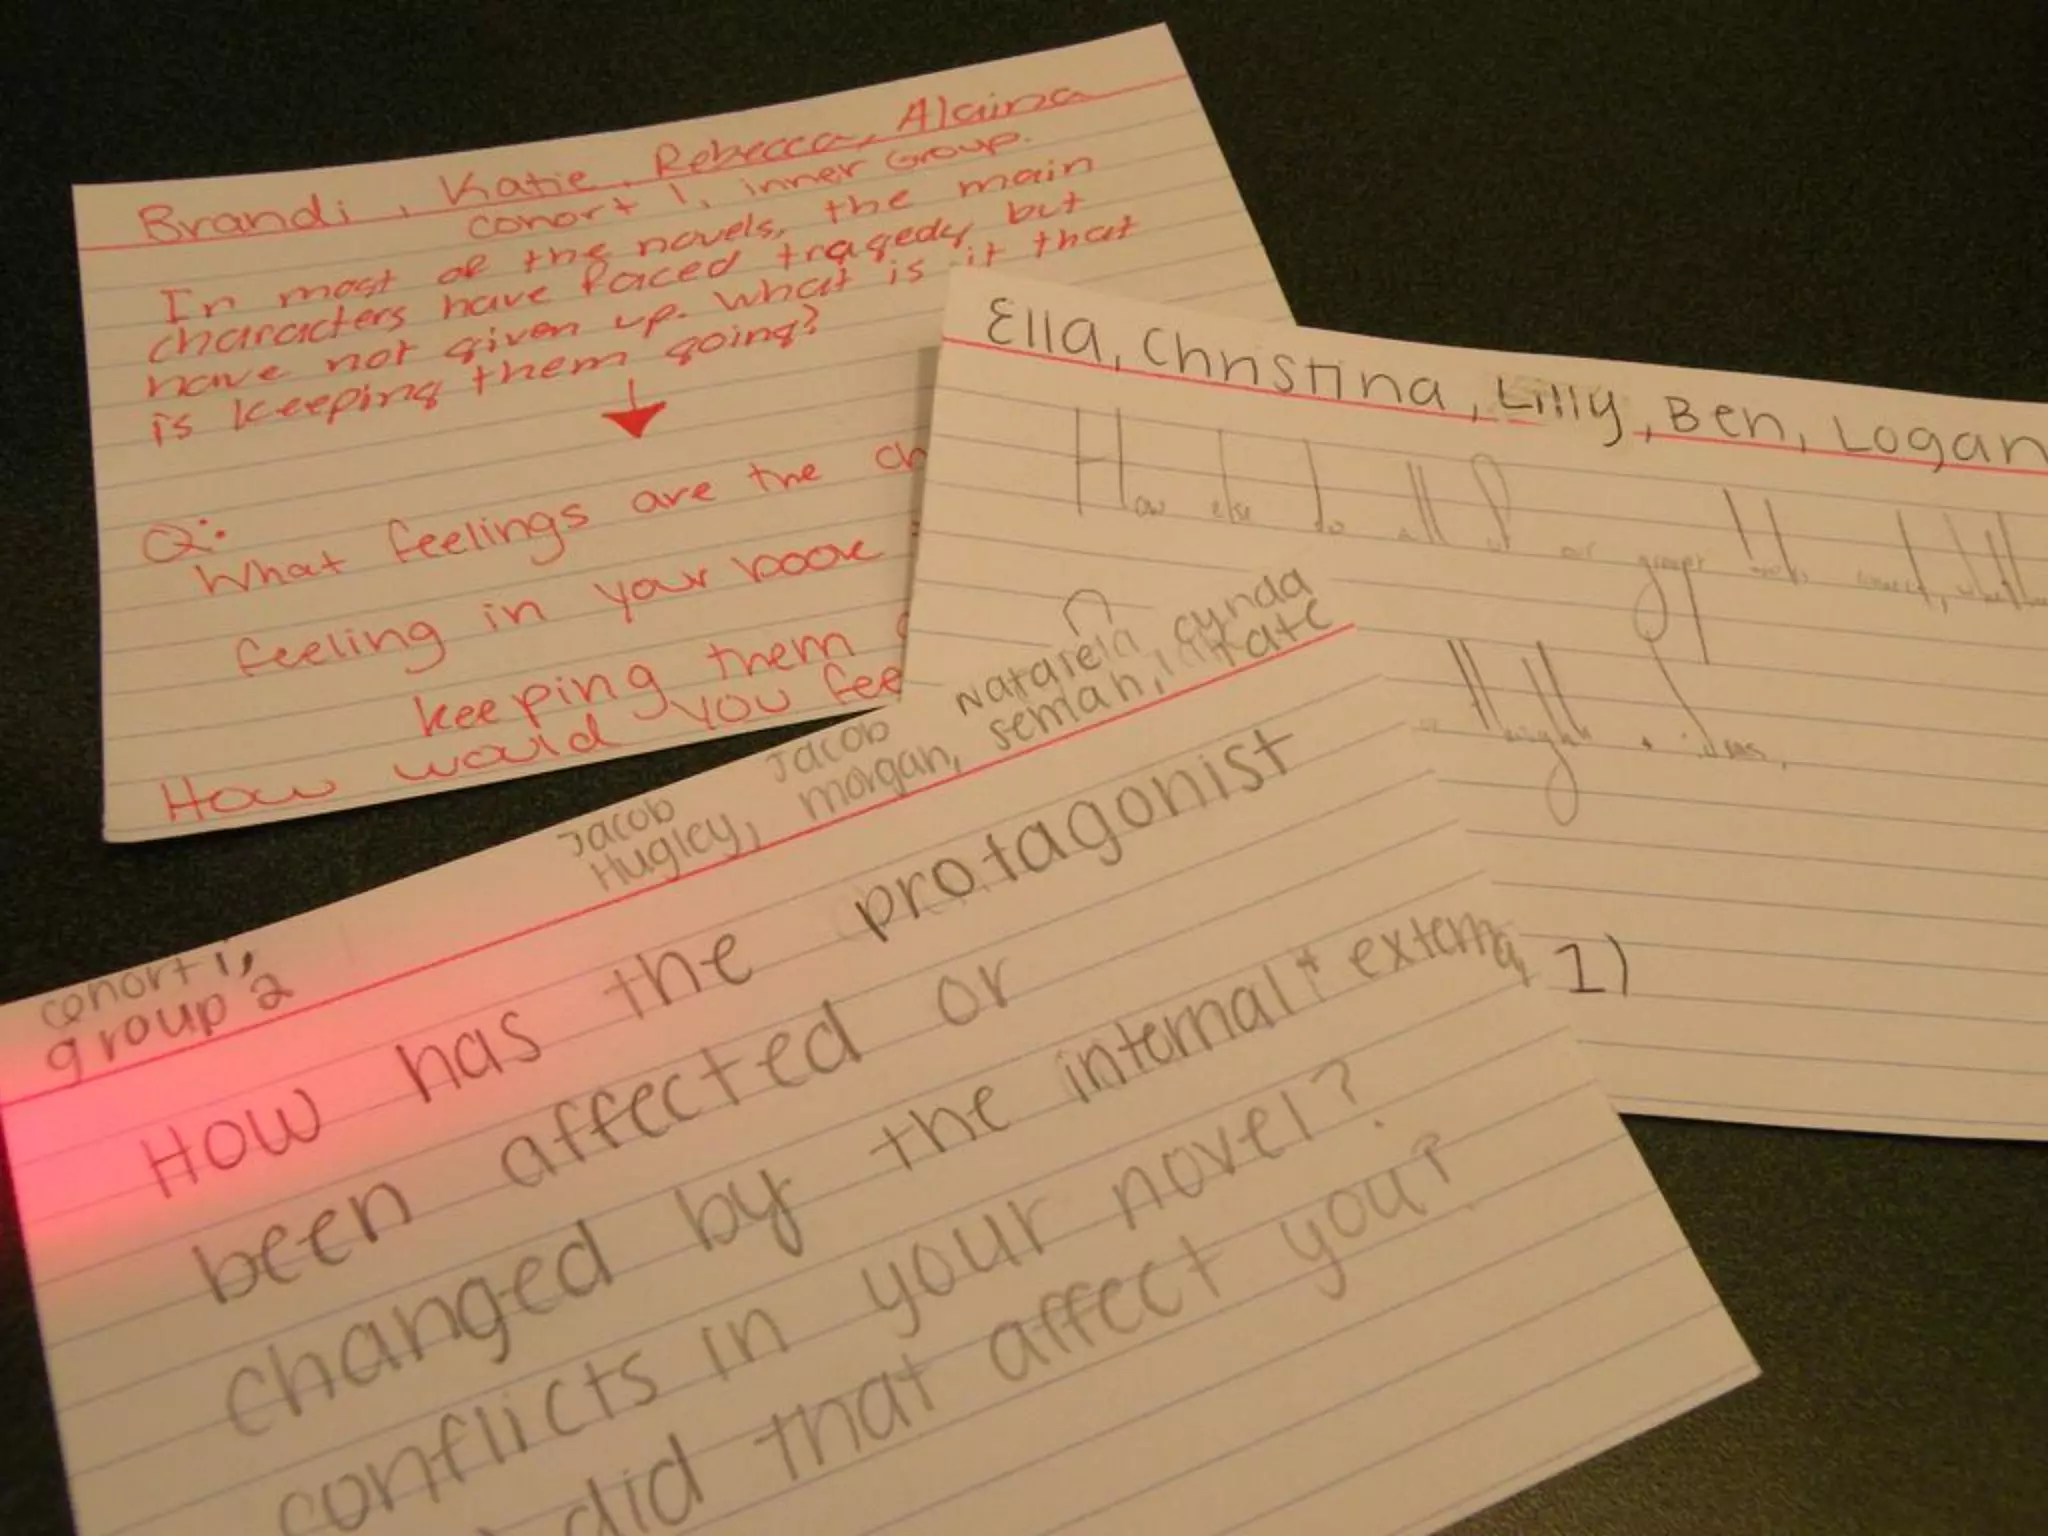 Brandi, Katie, Rebecca, Alaina
cohort 1, inner Group.
In most of the novels, the main
characters have faced tragedy but
have not given up. What is it that
is keeping them going?
Q:
What feelings are the ch
feeling in your book
keeping them
How would you fee
Ella, Christina, Lilly, Ben, Logan
How else do all of our
thoughts + ideas.
1)
cohort 1,
group 2
Jacob
Hugley,
Jacob
morgan,
cynda
tate
How has the protagonist
been affected or
changed by the internal + external
conflicts in your novel?
did that affect you?